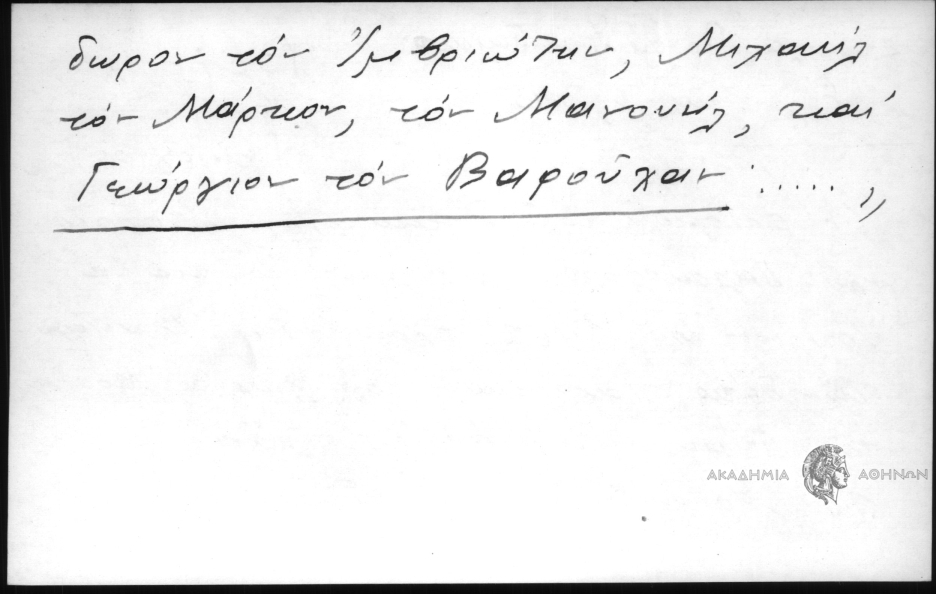 δωρον τόν Ἰμβριώτην, Μιχαήλ
τόν Μάρκον, τόν Μανουήλ, καί
Γεώργιον τόν Βαροῦχαν ..... ,,
ΑΚΑΔΗΜΙΑ ΑΘΗΝΩΝ